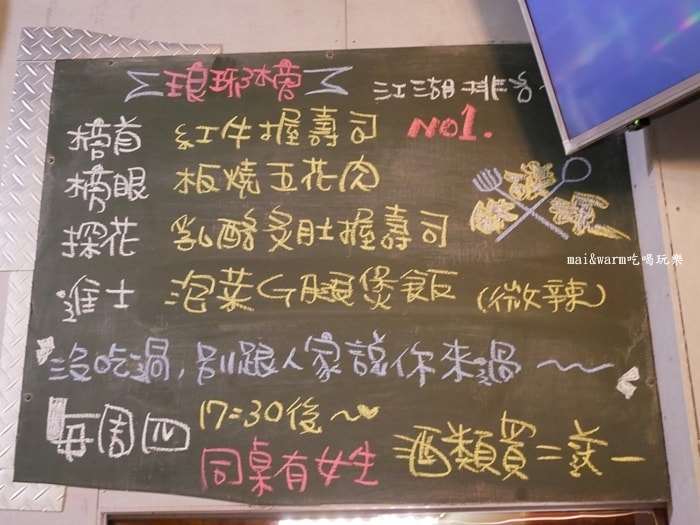 琅琊榜 江湖排名~
榜首 紅牛握壽司 NO1.
榜眼 板燒五花肉
探花 乳酪炙肚握壽司
進士 泡菜G腿煲飯 (微辣)
沒吃過,別跟人家說你來過~~
每周四 17:30後~
同桌有女生 酒類買二送一
mai&warm吃喝玩樂